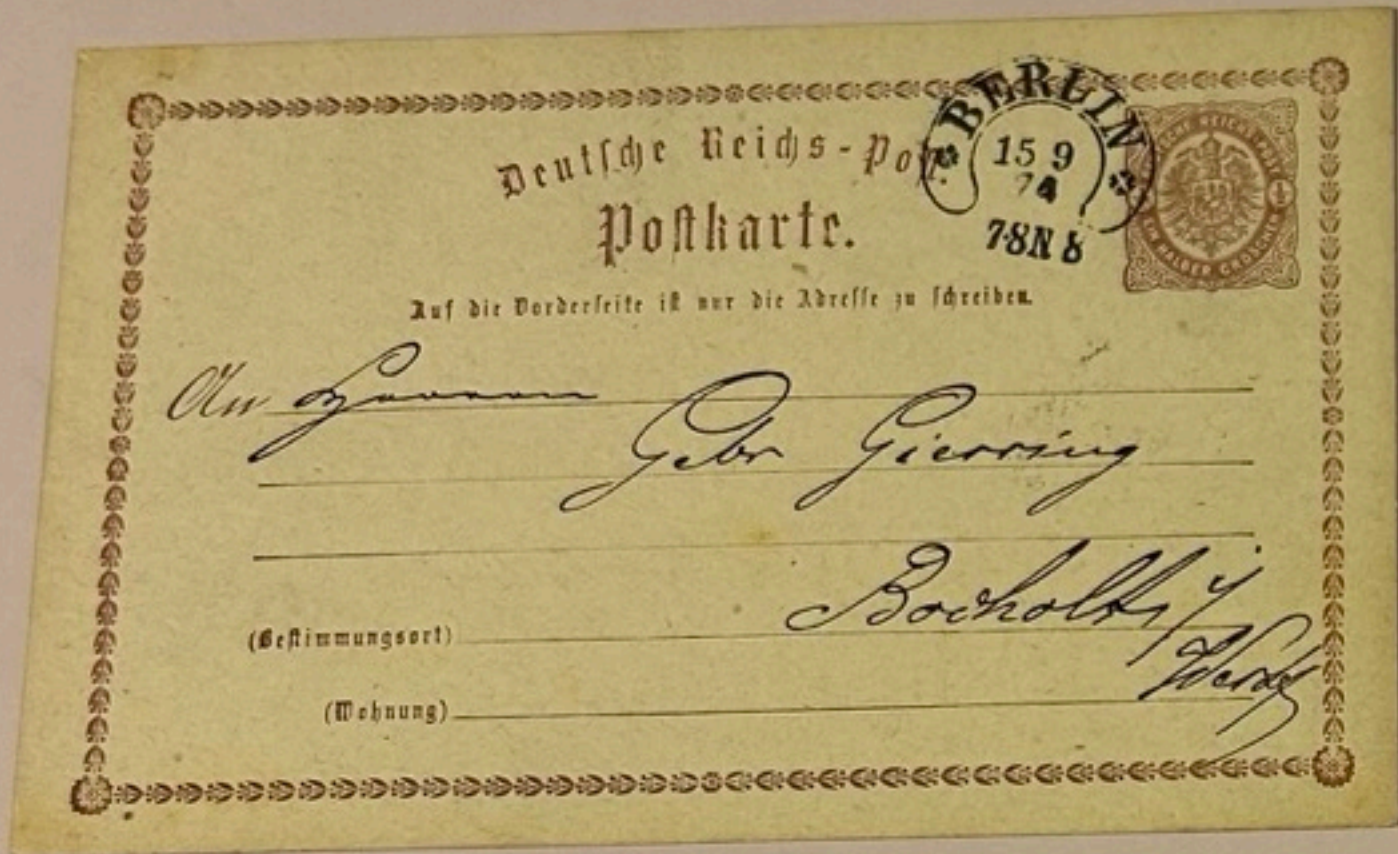 Deutsche Reichs-Post.
Postkarte.
BERLIN
15 9
74
7-8N
DEUTSCHE REICHS-POST
EIN HALBER GROSCHEN
Auf die Vorderseite ist nur die Adresse zu schreiben.
An Herren
Gebr Gierring
Bocholt i/
(Bestimmungsort)
(Wohnung)